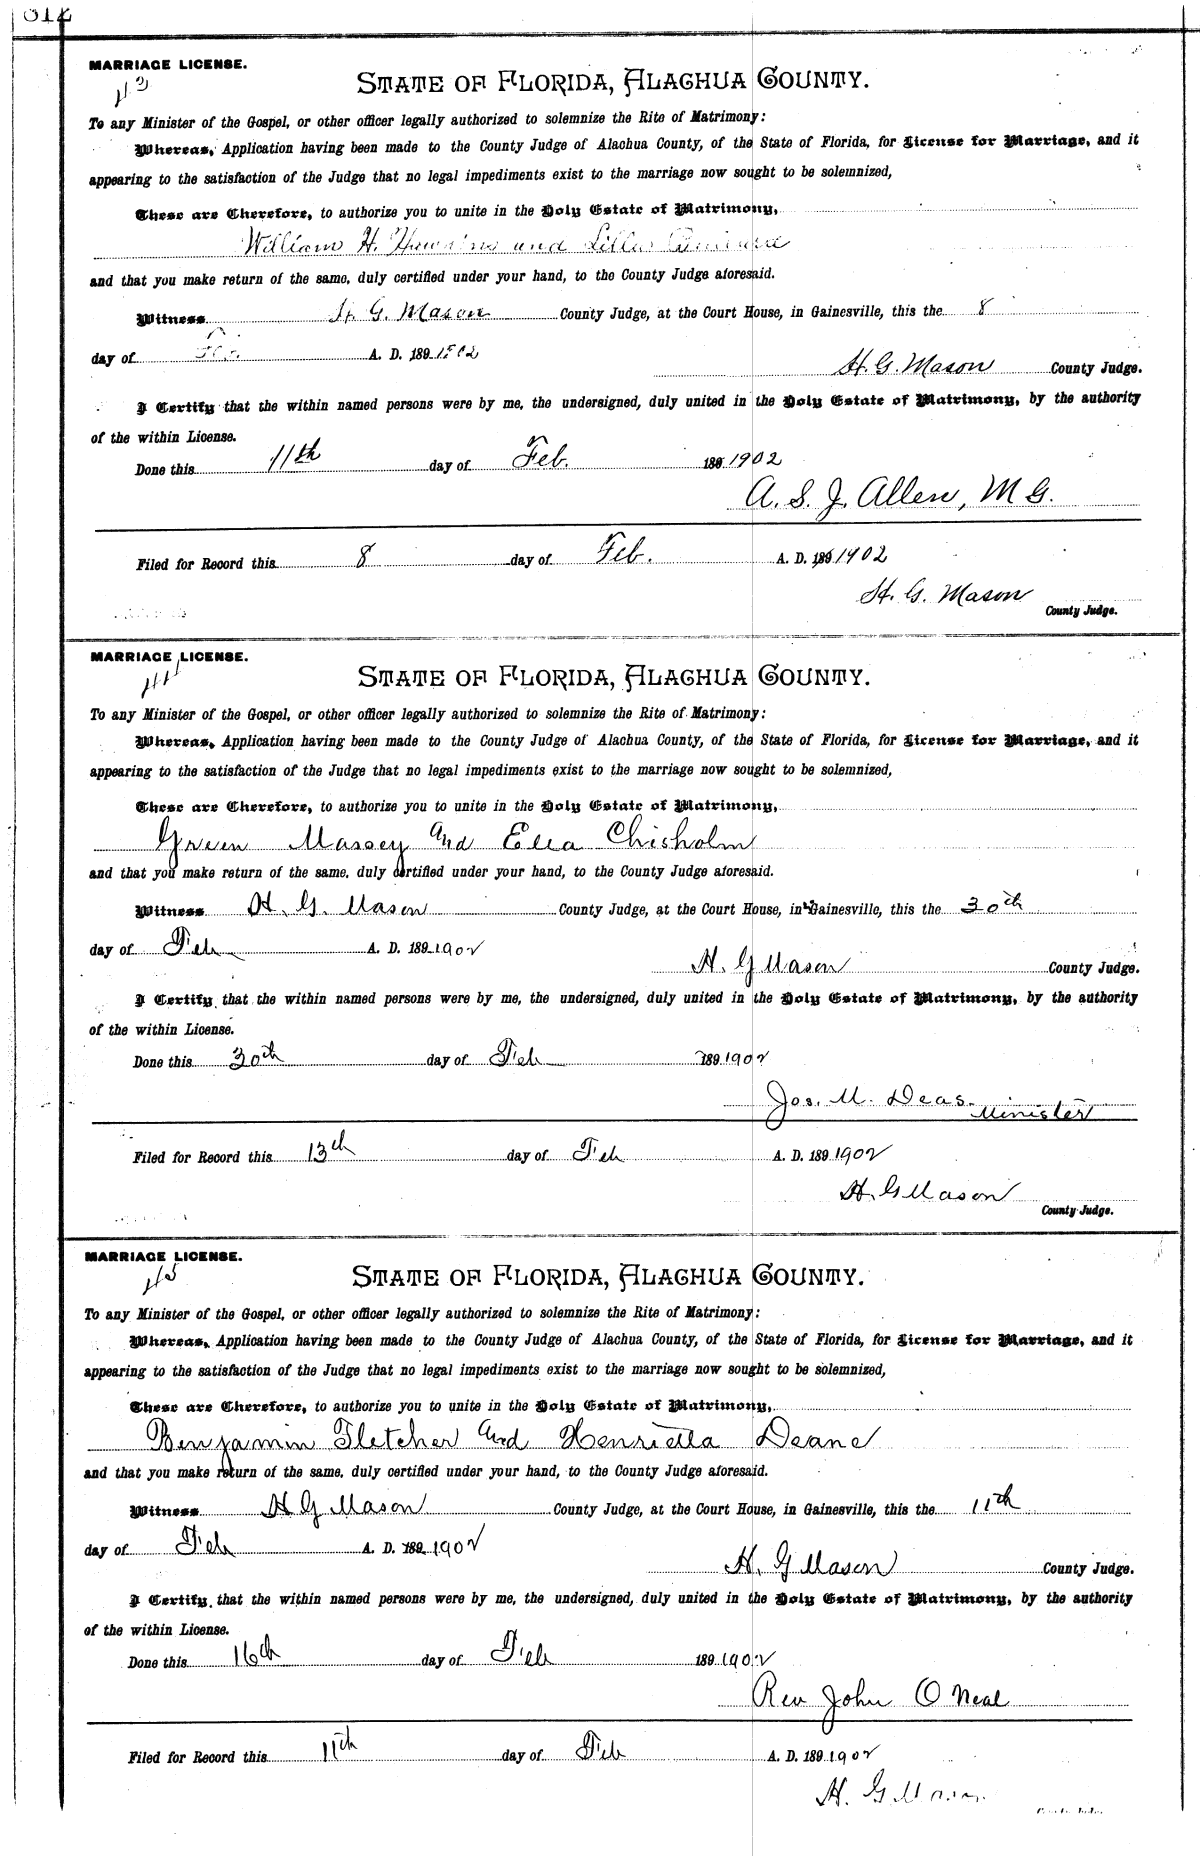 MARRIAGE LICENSE.
43
STATE OF FLORIDA, ALACHUA COUNTY.
To any Minister of the Gospel, or other officer legally authorized to solemnize the Rite of Matrimony:
Whereas, Application having been made to the County Judge of Alachua County, of the State of Florida, for License for Marriage, and it
appearing to the satisfaction of the Judge that no legal impediments exist to the marriage now sought to be solemnized,
These are Therefore, to authorize you to unite in the Holy Estate of Matrimony,
William H. Hawkins and Lillie
and that you make return of the same, duly certified under your hand, to the County Judge aforesaid.
Witness H. G. Mason County Judge, at the Court House, in Gainesville, this the 8
day of Feb. A. D. 189 1902
H. G. Mason County Judge.
I Certify that the within named persons were by me, the undersigned, duly united in the Holy Estate of Matrimony, by the authority
of the within License.
Done this 11th day of Feb. 189 1902
A. S. J. Allen, M G.
Filed for Record this 8 day of Feb. A. D. 189 1902
H. G. Mason
County Judge.
MARRIAGE LICENSE.
44
STATE OF FLORIDA, ALACHUA COUNTY.
To any Minister of the Gospel, or other officer legally authorized to solemnize the Rite of Matrimony:
Whereas, Application having been made to the County Judge of Alachua County, of the State of Florida, for License for Marriage, and it
appearing to the satisfaction of the Judge that no legal impediments exist to the marriage now sought to be solemnized,
These are Therefore, to authorize you to unite in the Holy Estate of Matrimony,
Green Massey and Ella Chisholm
and that you make return of the same, duly certified under your hand, to the County Judge aforesaid.
Witness H. G. Mason County Judge, at the Court House, in Gainesville, this the 30th
day of Feb A. D. 189 1902
H. G Mason County Judge.
I Certify that the within named persons were by me, the undersigned, duly united in the Holy Estate of Matrimony, by the authority
of the within License.
Done this 30th day of Feb 189 1902
Jos. M. Deas.
Minister
Filed for Record this 13th day of Feb A. D. 189 1902
H. G Mason
County Judge.
MARRIAGE LICENSE.
45
STATE OF FLORIDA, ALACHUA COUNTY.
To any Minister of the Gospel, or other officer legally authorized to solemnize the Rite of Matrimony:
Whereas, Application having been made to the County Judge of Alachua County, of the State of Florida, for License for Marriage, and it
appearing to the satisfaction of the Judge that no legal impediments exist to the marriage now sought to be solemnized,
These are Therefore, to authorize you to unite in the Holy Estate of Matrimony,
Benjamin Fletcher and Henrietta Deane
and that you make return of the same, duly certified under your hand, to the County Judge aforesaid.
Witness H G Mason County Judge, at the Court House, in Gainesville, this the 11th
day of Feb A. D. 189 1902
H. G Mason County Judge.
I Certify that the within named persons were by me, the undersigned, duly united in the Holy Estate of Matrimony, by the authority
of the within License.
Done this 16th day of Feb 189 1902
Rev John O Neal
Filed for Record this 11th day of Feb A. D. 189 1902
H. G Mason
County Judge.